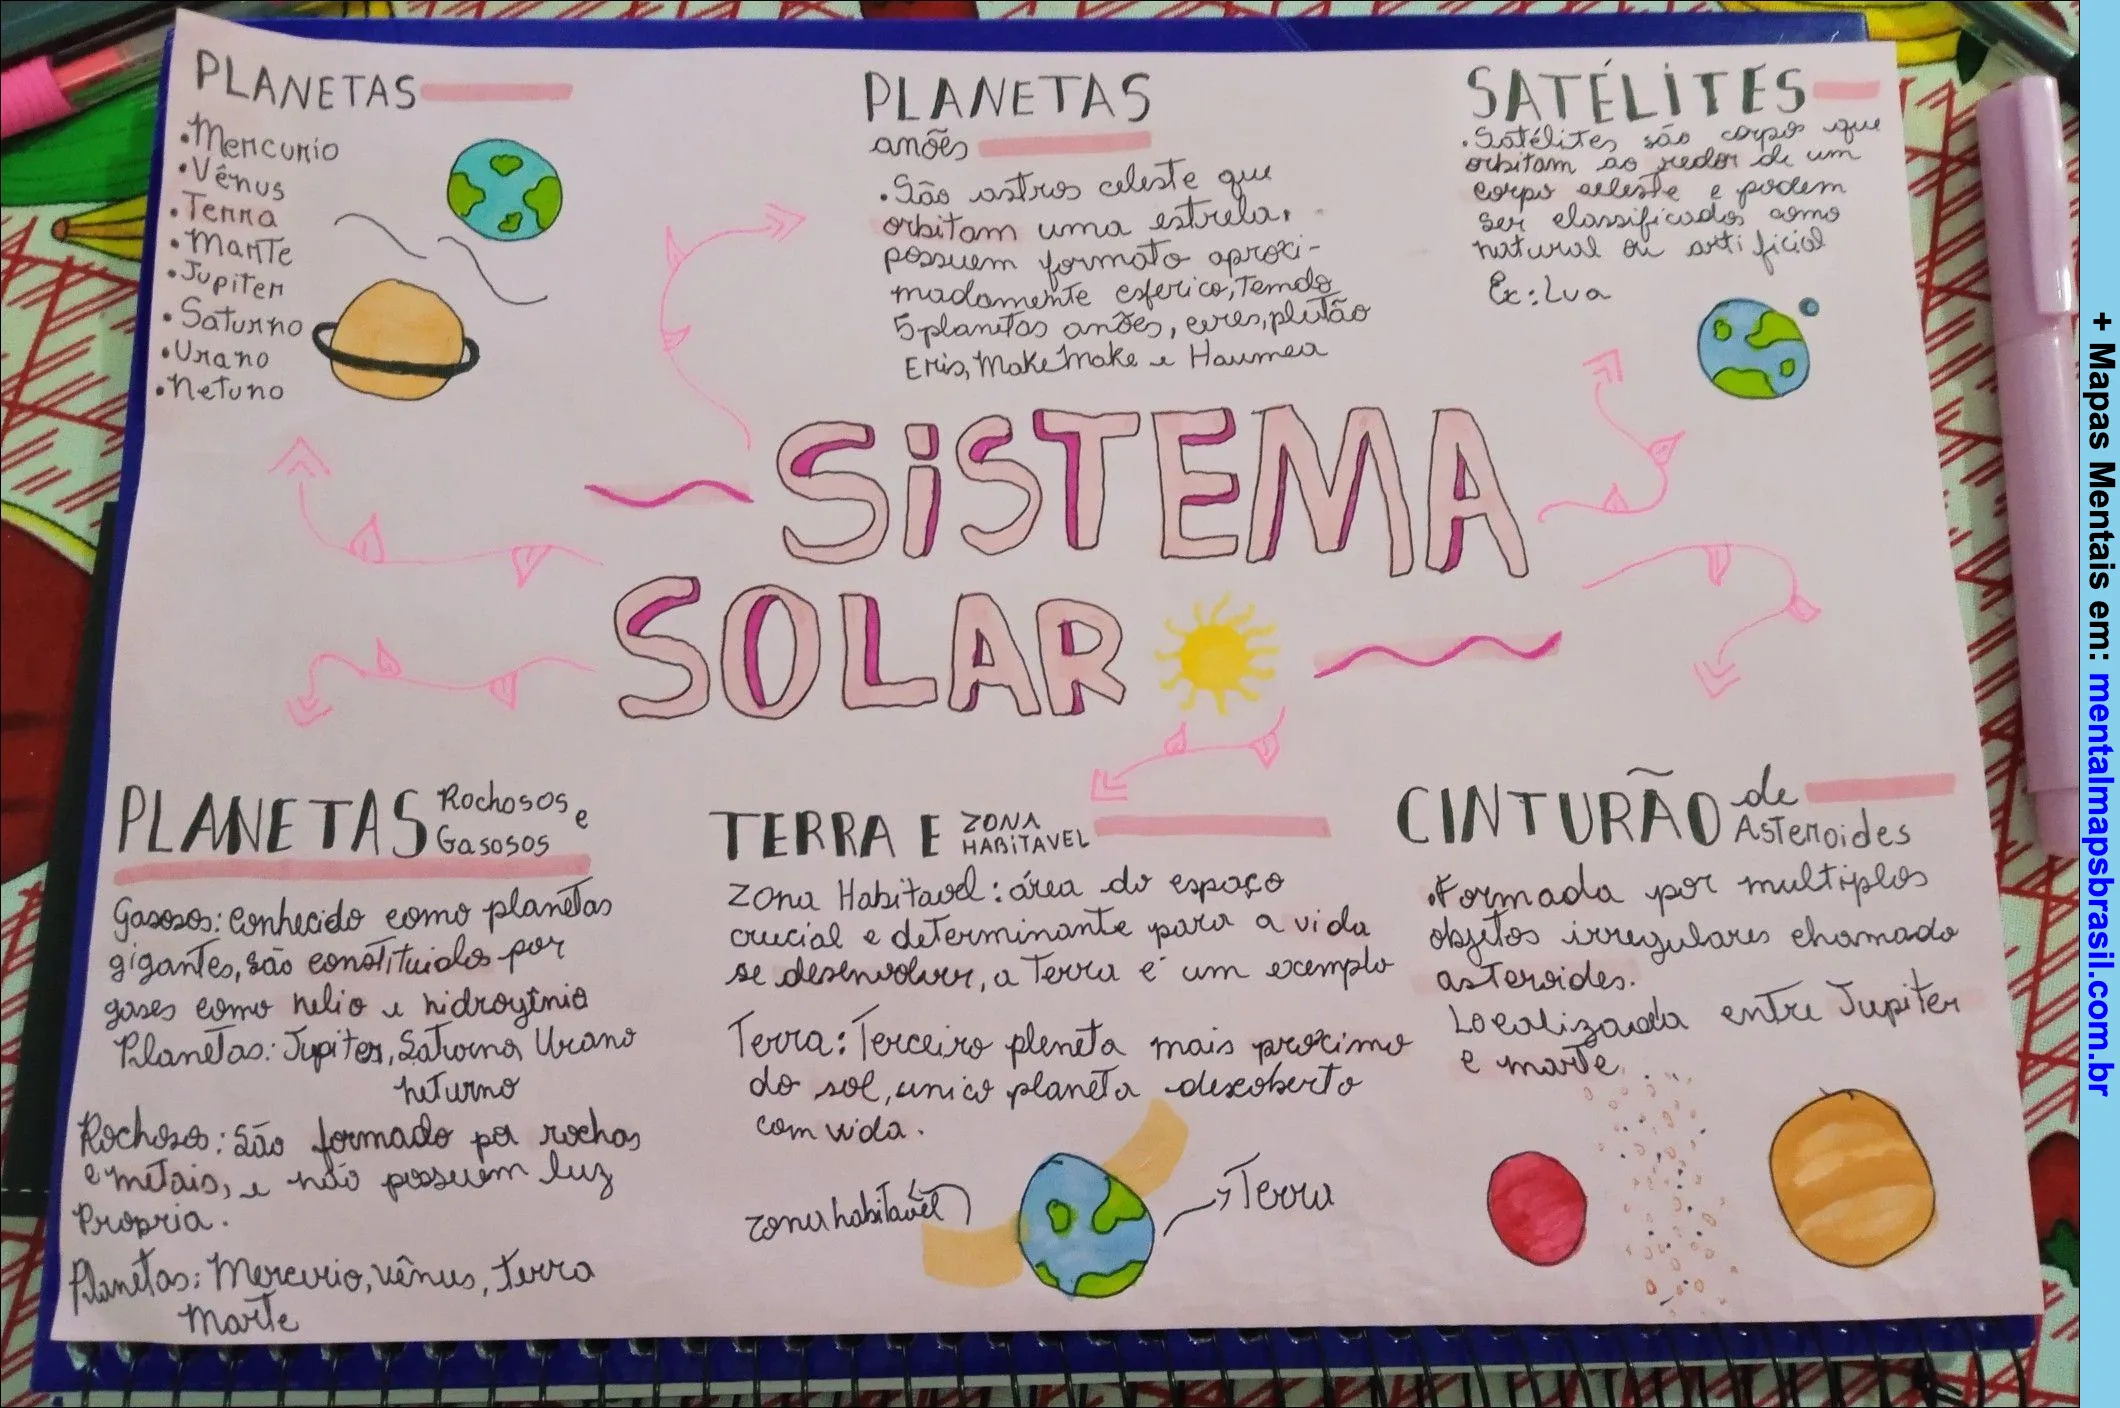 PLANETAS
• Mercurio
• Vênus
• Terra
• Marte
• Jupiter
• Saturno
• Urano
• Netuno
PLANETAS
anões
• São astros celeste que
orbitam uma estrela,
possuem formato aproxi-
madamente esferico, Temdo
5 planetas anões, ceres, plutão
Eris, MakeMake e Haumea
SATÉLITES
• Satélites são corpo que
orbitam ao redor de um
corpo celeste e podem
ser classificados como
natural ou artificial
Ex: Lua
SISTEMA
SOLAR
PLANETAS Rochosos e
Gasosos
Gasosos: conhecido como planetas
gigantes, são constituidos por
gases como helio e hidrogênio
Planetas: Jupiter, Saturno, Urano
neturno
Rochoso: São formado por rochas
e metais, e não possuem luz
Propria.
Planetas: Mercurio, vênus, terra
Marte
TERRA E ZONA
HABITAVEL
Zona Habitavel: área do espaço
crucial e determinante para a vida
se desenvolver, a Terra é um exemplo
Terra: Terceiro pleneta mais proximo
do sol, unico planeta descoberto
com vida.
zona habitavel
Terra
CINTURÃO de
Asteroides
• Formada por multiplos
objetos irregulares chamado
asteroides.
Localizada entre Jupiter
e marte.
+ Mapas Mentais em: mentalmapsbrasil.com.br